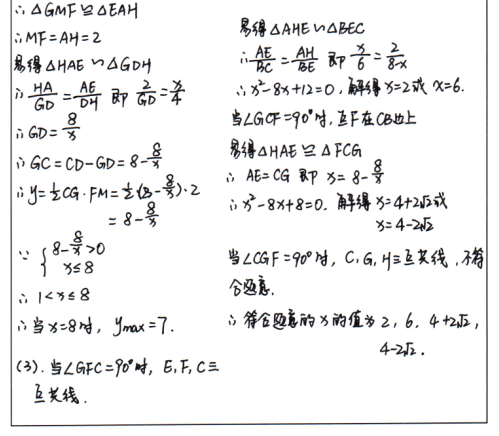 ∴ △GMF ≌ △EAH
∴ MF=AH=2
易得△HAE ∽ △GDH
∴ HA/GD = AE/DH 即 2/GD = x/4
∴ GD= 8/x
∴ GC=CD-GD=8-8/x
∴ y=½CG·FM=½(8-8/x)·2
=8-8/x
∵ { 8-8/x>0
x≤8
∴ 1<x≤8
∴ 当x=8时, ymax=7.
(3). 当∠GFC=90°时, E, F, C三
点共线.
易得△AHE∽△BEC
∴ AE/BC = AH/BE 即 x/6 = 2/(8-x)
∴ x²-8x+12=0, 解得x=2或 x=6.
当∠GCF=90°时, 点F在CB边上
易得△HAE≌△FCG
∴ AE=CG 即 x=8-8/x
∴ x²-8x+8=0. 解得 x=4+2√2或
x=4-2√2
当∠CGF=90°时, C, G, H三点共线, 不符
合题意.
∴ 符合题意的x的值为2, 6, 4+2√2,
4-2√2.